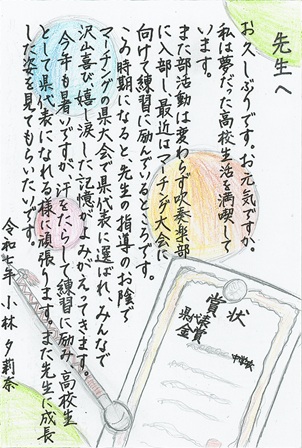 先生へ
お久しぶりです。お元気ですか。
私は夢だった高校生活を満喫して
います。
また部活動は変わらず吹奏楽部
に入部し最近はマーチング大会に
向けて練習に励んでいるところです。
この時期になると、先生の指導のお陰で
マーチングの県大会で県代表に選ばれ、みんなで
沢山喜び嬉し涙した記憶がよみがえってきます。
今年も暑いですが、汗をたらして練習に励み、高校生
として県代表になれる様に頑張ります。また先生に成長
した姿を見てもらいたいです。
令和七年 小林夕莉奈
賞状
県代表
金賞